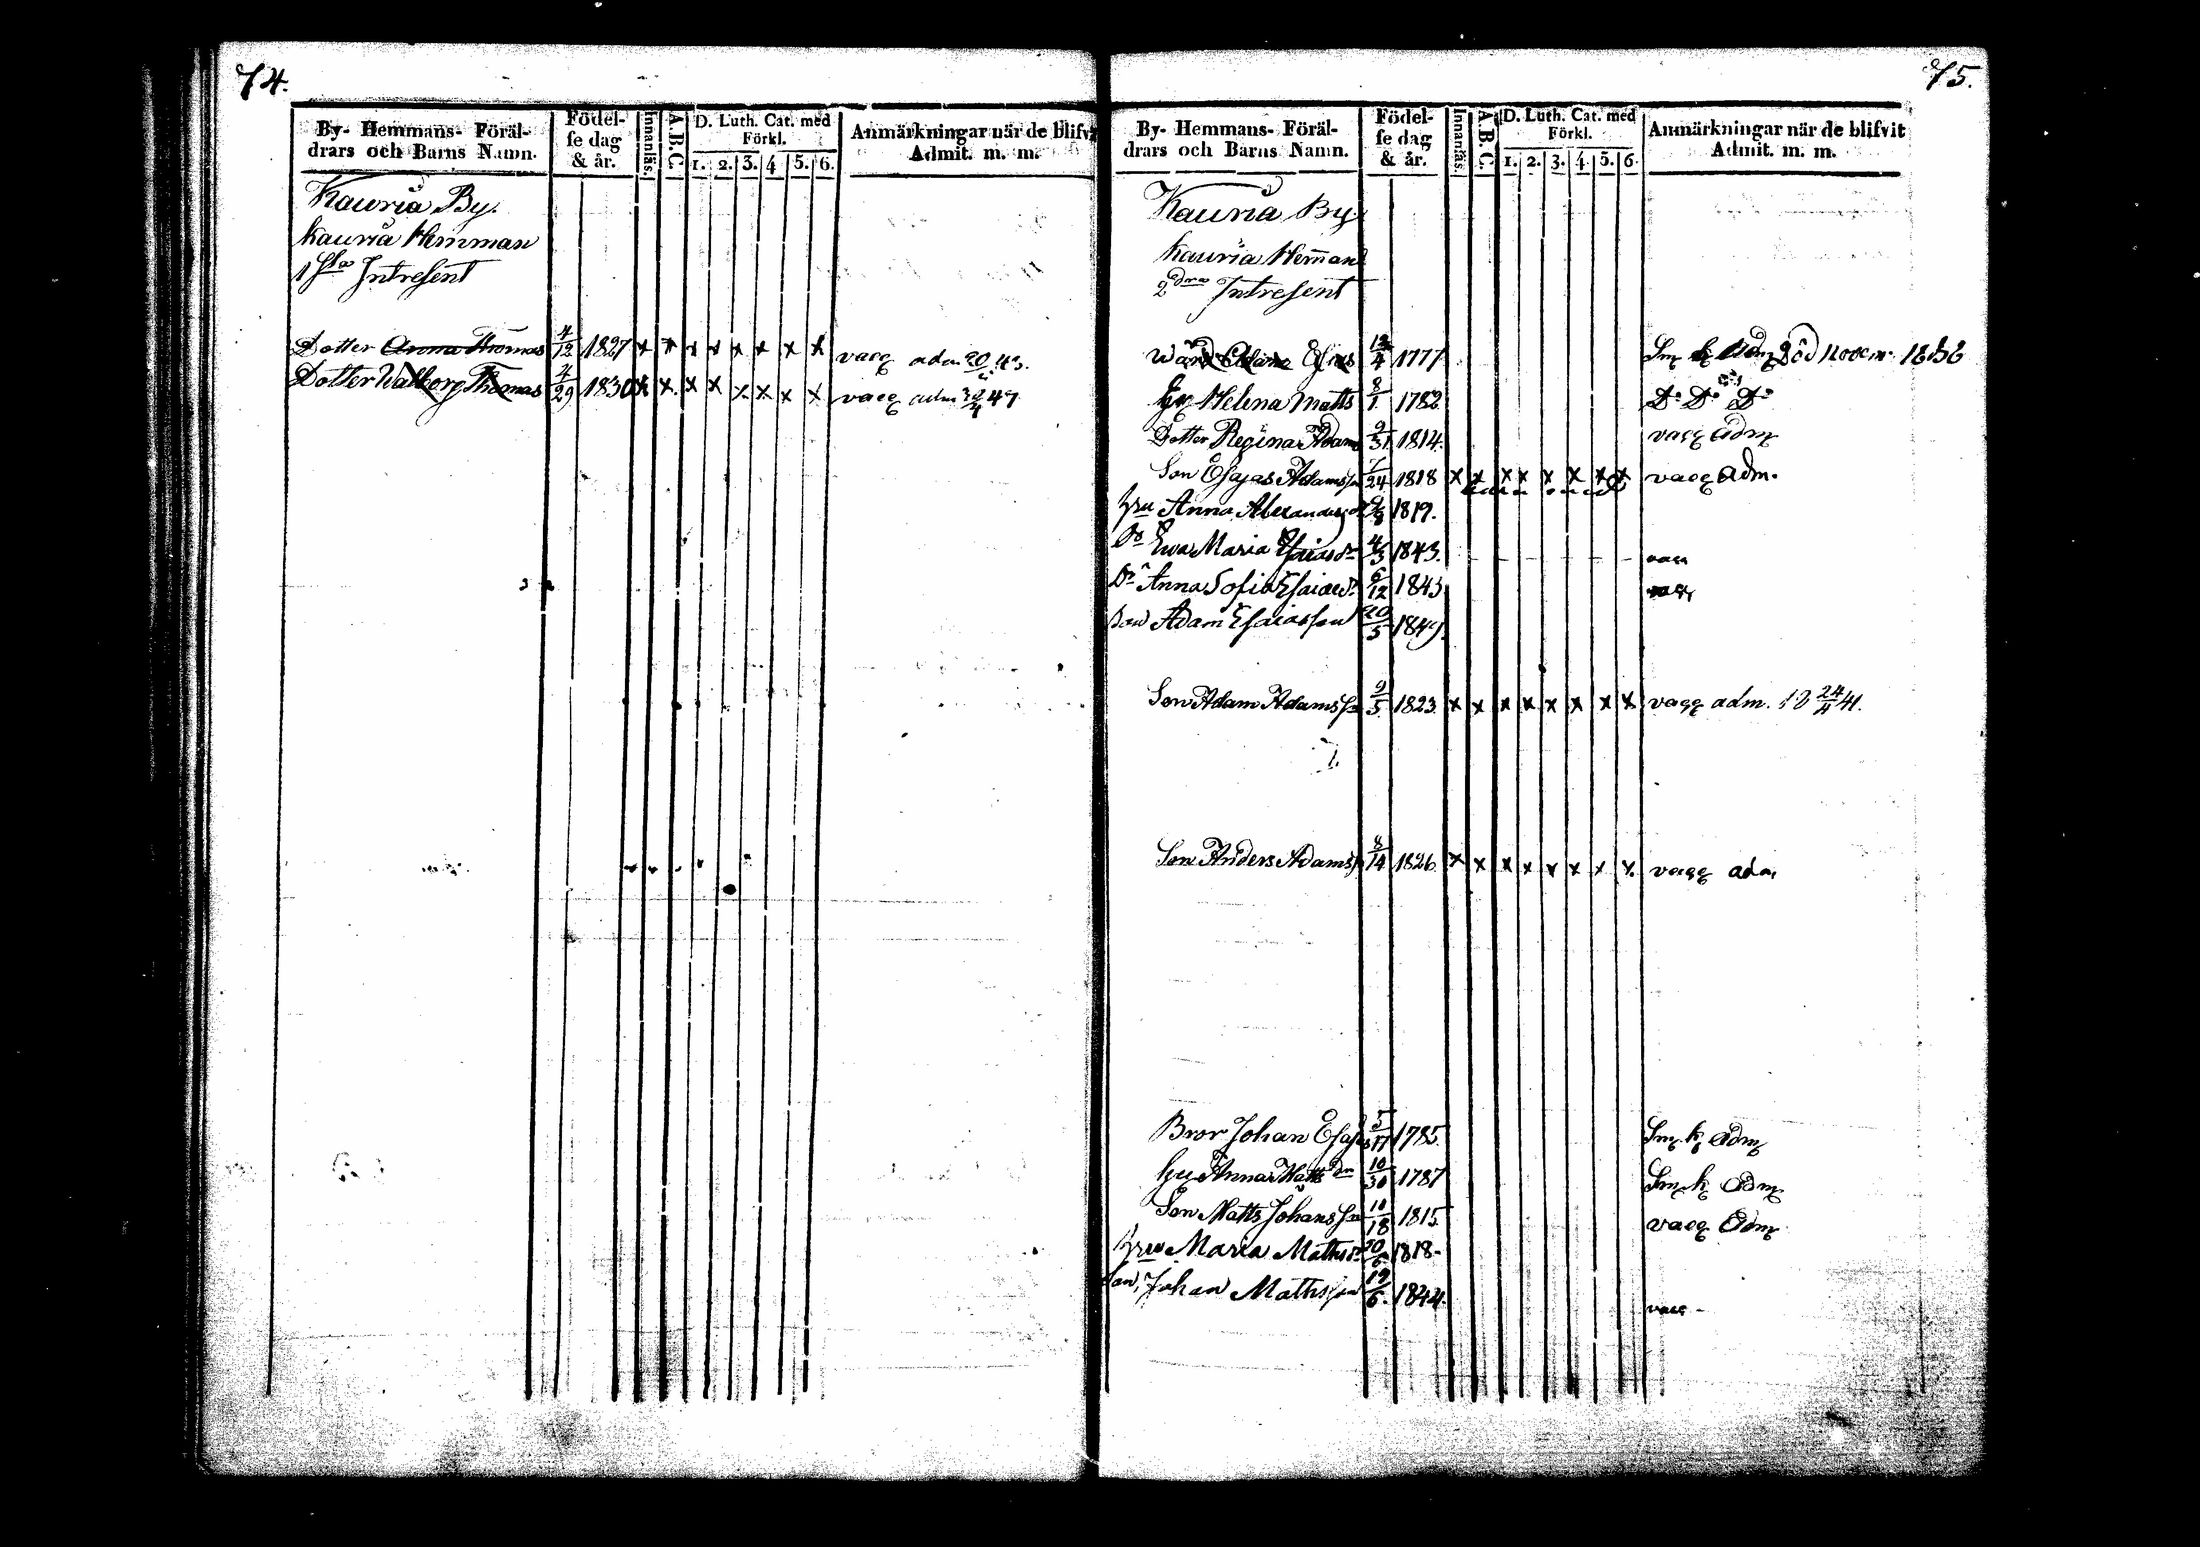 74.
By- Hemmans- Föräl-
drars och Barns Namn.
Födel-
se dag
& år.
Innanläs.
A.B.C.
D. Luth. Cat. med
Förkl.
1. 2. 3. 4 5. 6.
Anmärkningar när de blifvit
Admit. m. m.
Kauria By.
Kauria Hemman
1sta Intresent
Dotter Anna Thomas 4/12 1827 x x x x x x x x vacc adm 20/ 43.
Dotter Walborg Thomas 4/29 1830 x x x x x x x x vacc adm 49
75.
By- Hemmans- Föräl-
drars och Barns Namn.
Födel-
se dag
& år.
Innanläs.
A.B.C.
D. Luth. Cat. med
Förkl.
1. 2. 3. 4 5. 6
Anmärkningar när de blifvit
Admit. m. m.
Kauria By.
Kauria Heman
2dra Intresent
Wärd Adam Esias /4 1777 Sm k Adm Död Novem.
Hu Helena Matts 8/1 1782 Do Do Do
Dotter Regina Adams 9/31 1814. vacc Adm
Son Esajas Adamsson 7/24 1818 x x x x x x x x vacc Adm.
Hru Anna Alexandersdr 1819.
Dr Ewa Maria Esaiasdr 4/3 1843. vacc
Dr Anna Sofia Esaiasdr 6/12 1845 vacc
Son Adam Esaiasson 20/5 1849.
Son Adam Adamsson 9/5 1823 x x x x x x x x vacc adm. 18 24/4 41.
Son Anders Adamss 8/14 1826 x x x x x x x x vacc adm
Bror Johan Esajas 5/17 1785 Sm k Adm
Hu Anna Matts dr 10/30 1787 Sm k Adm
Son Matts Johansson 11/18 1815 vacc Adm
Hru Maria Mathsdr 20/6 1818.
Son, Johan Mathsson 19/6. 1844. vacc